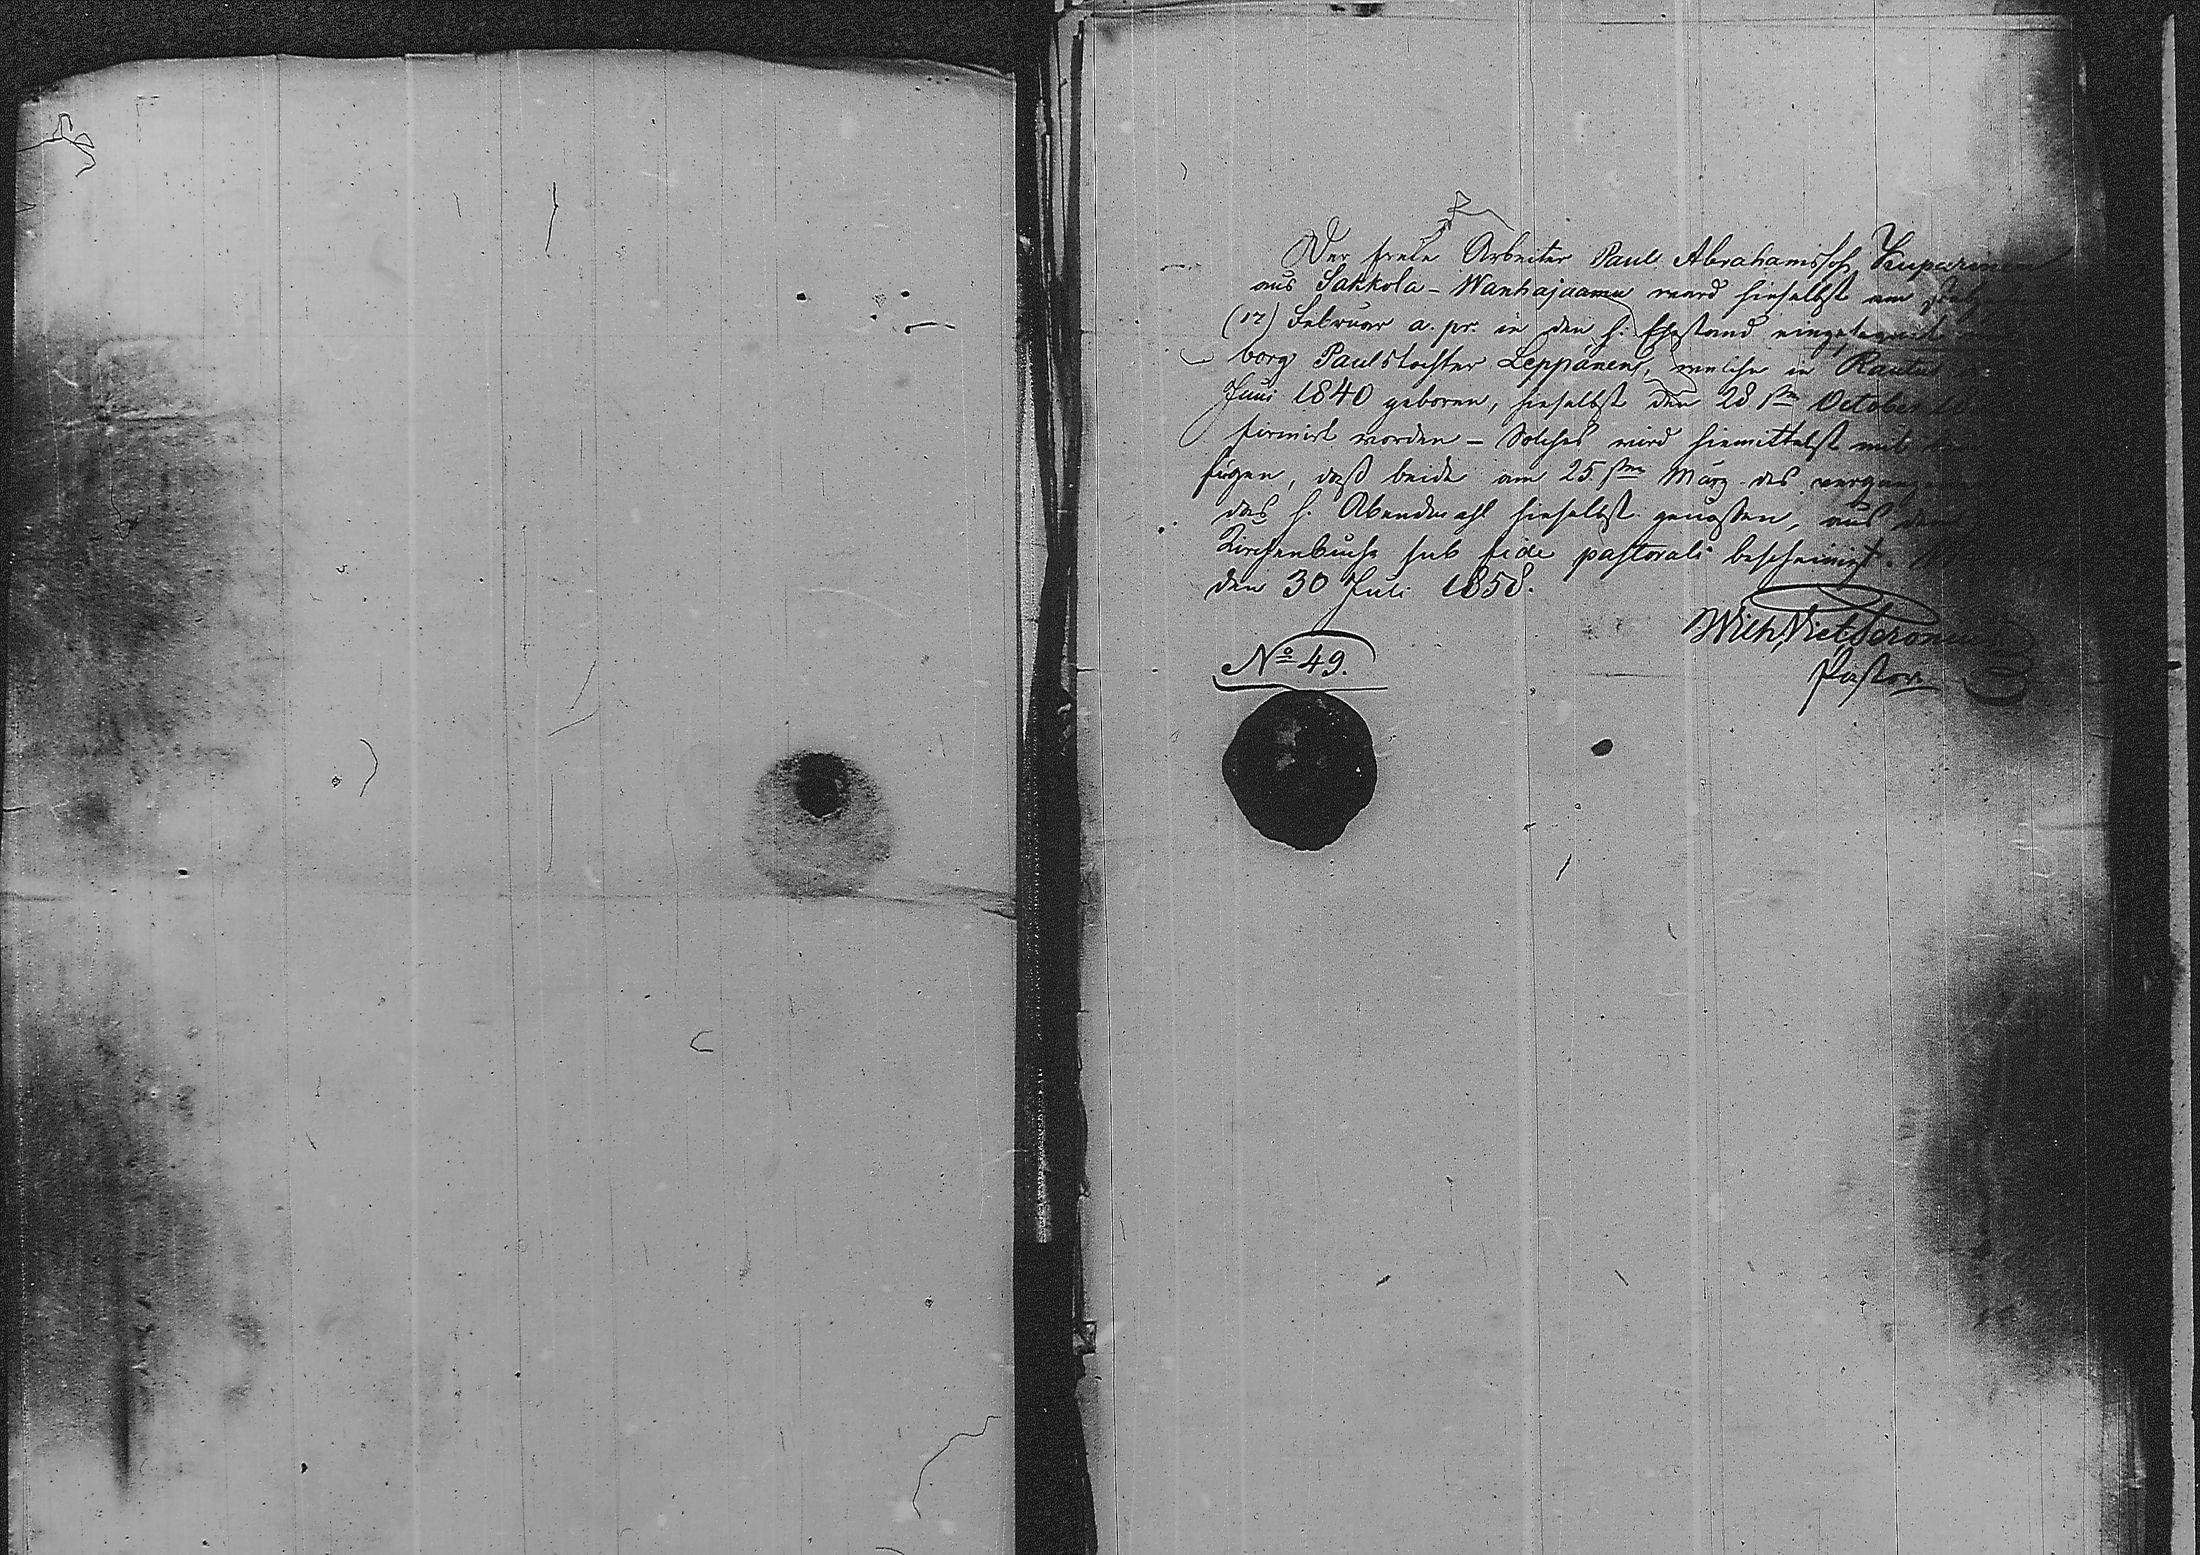 Der freie Arbeiter Paul Abrahamssohn Kuparinen
aus Sakkola-Wanhajaama ward hieselbst am
(12) Februar a. pr. in den h. Ehestand eingesegnet
borg Paulstochter Leppänen, welche in Rautus
Juni 1840 geboren, hieselbst den 28sten October
firmirt worden – Solches wird hiemittelst mit
fügen, daß beide am 25sten März des
das h. Abendmahl hieselbst genossen, aus dem
Kirchenbuche sub fide pastorali bescheinigt.
den 30 Juli 1858.
Wilh.
Pastor.
No 49.